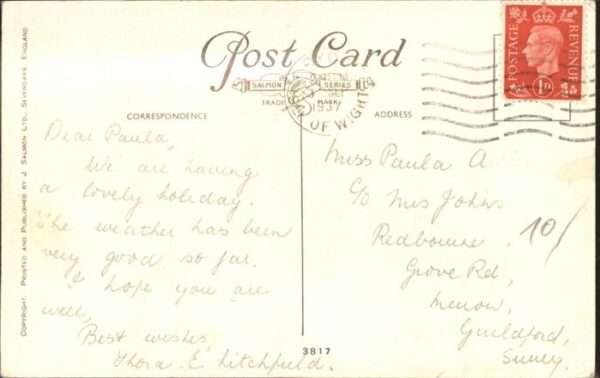 Post Card
SALMON SERIES
TRADE MARK
1937
OF WIGHT
POSTAGE REVENUE
1D
CORRESPONDENCE
ADDRESS
Dear Paula,
We are having
a lovely holiday.
The weather has been
very good so far.
I hope you are
well,
Best wishes,
Thora E Litchfield.
Miss Paula A
C/o Mrs Johns
Redbourne
Grove Rd,
Merrow,
Guildford,
Surrey.
10/
3817
COPYRIGHT. PRINTED AND PUBLISHED BY J. SALMON LTD., SEVENOAKS, ENGLAND.